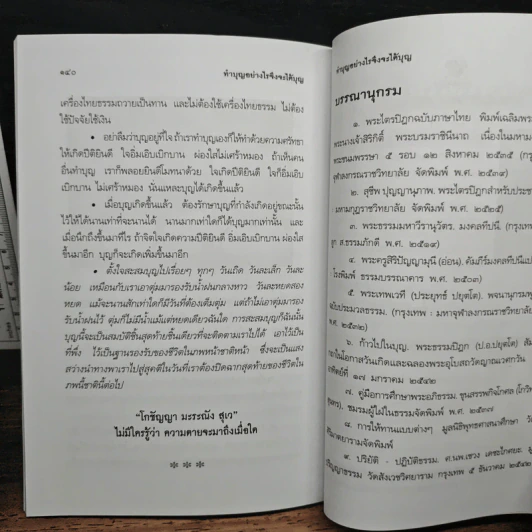 ๑๔๐ ทำบุญอย่างไรจึงจะได้บุญ
เครื่องไทยธรรมถวายเป็นทาน และไม่ต้องใช้เครื่องไทยธรรม ไม่ต้อง
ใช้ปัจจัยใช้เงิน
• อย่าลืมว่าบุญอยู่ที่ใจ ถ้าเราทำบุญเองก็ให้ทำด้วยความศรัทธา
ให้เกิดปีติยินดี ใจอิ่มเอิบเบิกบาน ผ่องใสไม่เศร้าหมอง ถ้าเห็นคน
อื่นทำบุญ เราก็พลอยยินดีโมทนาด้วย ใจเกิดปีติยินดี ใจก็อิ่มเอิบ
เบิกบาน ไม่เศร้าหมอง นั่นแหละบุญได้เกิดขึ้นแล้ว
• เมื่อบุญเกิดขึ้นแล้ว ต้องรักษาบุญที่กำลังเกิดอยู่ขณะนั้น
ไว้ให้ได้นานเท่าที่จะนานได้ นานมากเท่าใดก็ได้บุญมากเท่านั้น และ
เมื่อนึกถึงขึ้นมาทีไร ถ้าจิตใจเกิดความปีติยินดี อิ่มเอิบเบิกบาน ผ่องใส
ขึ้นมาอีก บุญก็จะเกิดเพิ่มขึ้นมาอีก
• ตั้งใจสะสมบุญไปเรื่อยๆ ทุกๆ วันเถิด วันละเล็ก วันละ
น้อย เหมือนกับเราเอาตุ่มมารองรับน้ำฝนกลางหาว วันละหยดสอง
หยด แม้จะนานสักเท่าใดก็มีวันที่ต้องเต็มตุ่ม แต่ถ้าไม่เอาตุ่มมารอง
รับน้ำฝนไว้ ตุ่มก็ไม่มีน้ำแม้แต่หยดเดียวฉันใด การสะสมบุญก็ฉันนั้น
บุญจะเป็นสมบัติชิ้นสุดท้ายชิ้นเดียวที่จะติดตามเราไปได้ เอาไว้เป็น
ที่พึ่ง ไว้เป็นฐานรองรับของชีวิตในภพหน้าชาติหน้า ซึ่งจะเป็นแสง
สว่างนำทางพาเราไปสู่สุคติในวันที่เราต้องปิดฉากสุดท้ายของชีวิตใน
ภพนี้ชาตินี้ต่อไป
“โกชัญญา มะระณัง สุเว”
ไม่มีใครรู้ว่า ความตายจะมาถึงเมื่อใด
***
ทำบุญอย่างไรจึงจะได้บุญ
บรรณานุกรม
๑. พระไตรปิฎกฉบับภาษาไทย พิมพ์เฉลิมพระ
พระนางเจ้าสิริกิติ์ พระบรมราชินีนาถ เนื่องในมหาม
พระชนมพรรษา ๕ รอบ ๑๒ สิงหาคม ๒๕๓๕ (กรุ
จุฬาลงกรณราชวิทยาลัย จัดพิมพ์ พ.ศ. ๒๕๓๙)
๒. สุชีพ ปุญญานุภาพ. พระไตรปิฎกสำหรับประชา
มหามกุฏราชวิทยาลัย จัดพิมพ์ พ.ศ. ๒๕๒๕)
๓. พระธรรมมหาวีรานุวัตร. มงคลทีปนี. (กรุงเทพ
ลูก ส.ธรรมภักดี พ.ศ. ๒๕๑๙)
๔. พระครูสิริปัญญามุนี (อ่อน). คัมภีร์มงคลทีปนีแปล
โรงพิมพ์ ธรรมบรรณาคาร พ.ศ. ๒๕๐๓)
๕. พระเทพเวที (ประยุทธ์ ปยุตฺโต). พจนานุกรมพุ
ฉบับประมวลธรรม. (กรุงเทพ : มหาจุฬาลงกรณราชวิทยาลัย
พ.ศ. ๒๕๓๒)
๖. ก้าวไปในบุญ. พระธรรมปิฎก (ป.อ.ปยุตฺโต) สัม
เนื่องในโอกาสวันเกิดและฉลองพระอุโบสถวัดญาณเวศกวัน
อาทิตย์ที่ ๑๗ มกราคม ๒๕๔๒
๗. คู่มือการศึกษาพระอภิธรรม. ขุนสรรพกิจโกศล (โกวิท
ชมรมผู้ใฝ่ในธรรมจัดพิมพ์ พ.ศ. ๒๕๓๗
๘. การให้ทานแบบต่างๆ มูลนิธิพุทธศาสนศึกษา วั
จัดพิมพ์
๙. ปริยัติ - ปฏิบัติธรรม.
วัดสังเวชวิศยาราม กรุงเทพ ๕ ธันวาคม ๒๕๔๒